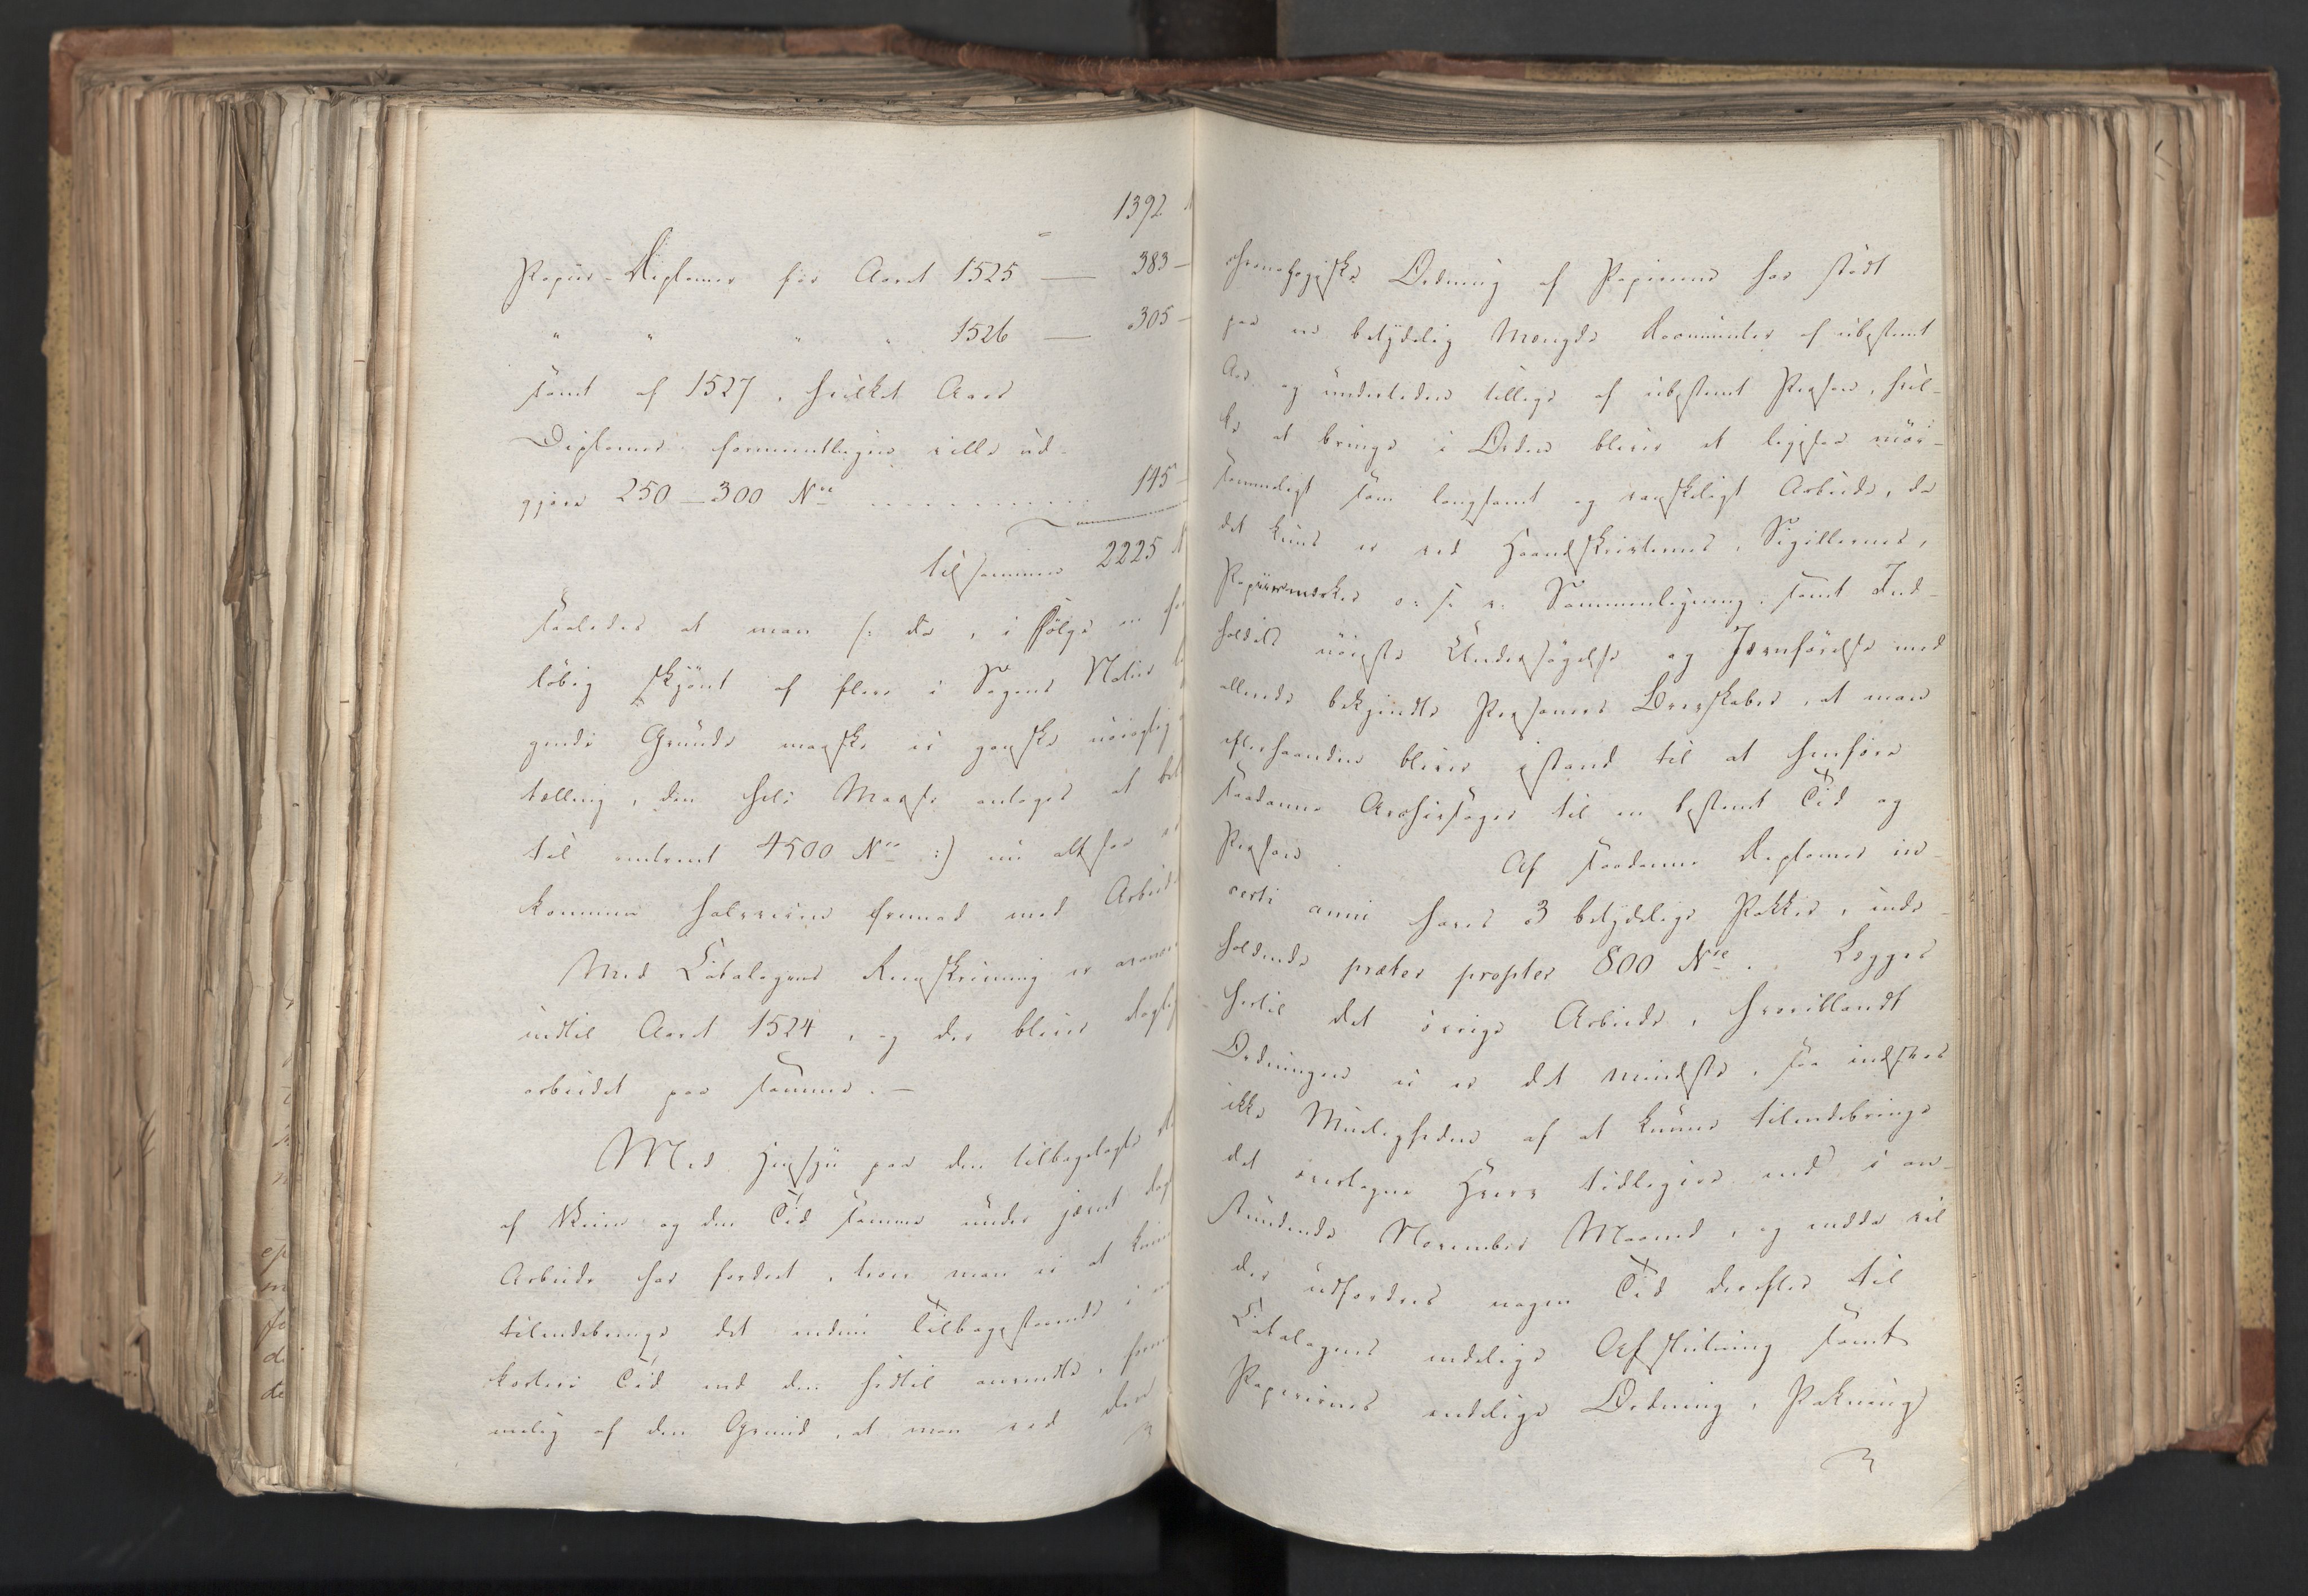 1392
Papir-Diplomer for Aaret 1525 — 383 —
" " " " 1526 — 305 —
samt af 1527, hvilket Aars
Diplomer formentligen ville ud-
gjøre 250—300 Nre ........... 145 —
tilsammen 2225 N
saaledes at man (: da, i Følge en for
løbig skjønt af flere i Sagens Natur
gende Grunde maaske ei ganske nøiagtig
tælling, den hele Masse antages at bel
til omtrent 4500 Nre :) nu altsaa
kommen halvveien frem med Arbeid
Med Catalogens Reenskrivning er avan
indtil Aaret 1524, og der bliver daglig
arbeidet paa samme. —
Med Hensyn paa den tilbagelagte
af Veien og den Tid samme under jevnt dag
Arbeide har fordret, troer man ei at kun
tilendebringe det endnu Tilbagestaaende i
kortere Tid end den hidtil anvendte, for
melig af den Grund, at man ved den
chronologiske Ordning af Papirerne har stødt
paa en betydelig Mængde Documenter af ubestemt
Aar og underleden tillige af ubestemt Person, hvil-
ke at bringe i Orden bliver et ligesaa møi-
sommeligt som langsomt og vanskeligt Arbeide, da
det kuns er ved Haandskrivternes, Sigillernes,
Papiirmærkes o. s. v. Sammenligning, samt Ind-
holdets nøieste Undersøgelse og Jævnførelse med
allerede bekjendte Personers Brevskaber, at man
efterhaanden bliver istand til at henføre
saadanne Archivsager til en bestemt Tid og
Person. Af saadanne Diplomer in-
certi anni haves 3 betydelige Pakker, inde-
holdende præter propter 800 Nre. Lægges
hertil det øvrige Arbeide, hvoriblandt
Ordningen ei er det mindste, saa indsees
ikke Muligheden af at kunne tilendebringe
det overtagne Hverv tidligere end i an-
stundende November Maaned, og endda vil
der udfordres nogen Tid derefter til
Catalogens endelige Afslutning samt
Papirernes endelige Ordning, Pakning